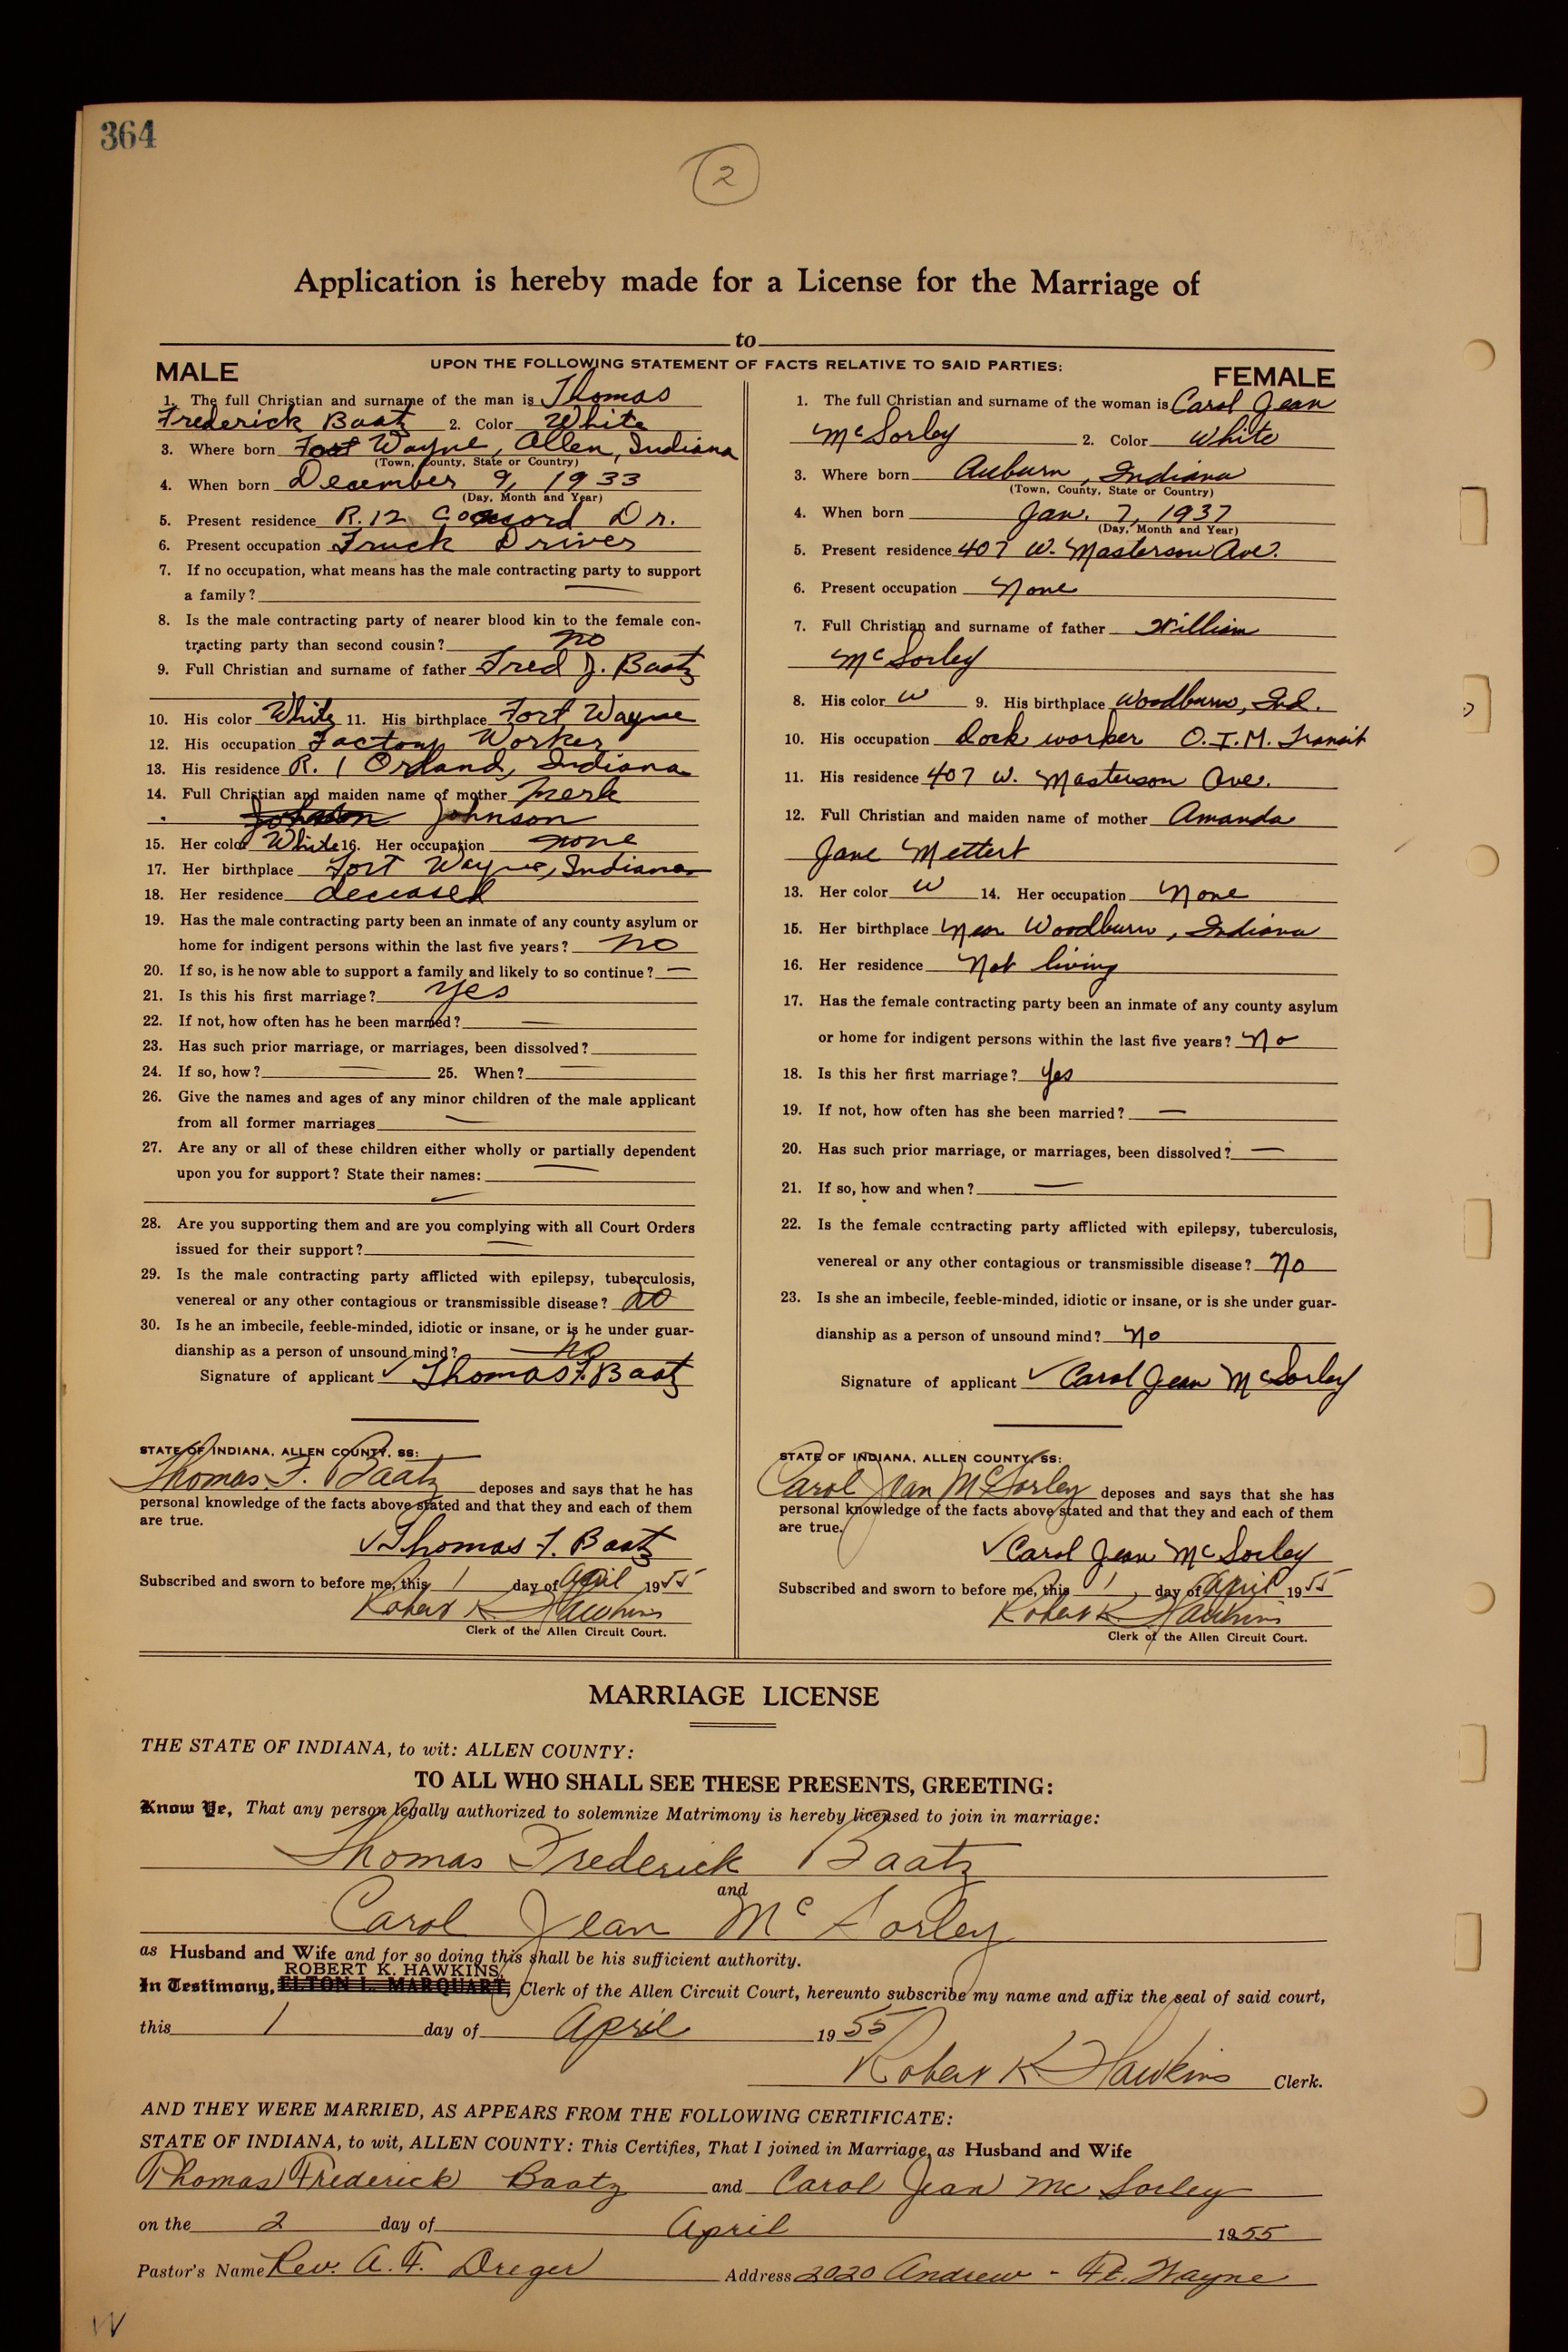 364
2
Application is hereby made for a License for the Marriage of
to
UPON THE FOLLOWING STATEMENT OF FACTS RELATIVE TO SAID PARTIES:
MALE
1. The full Christian and surname of the man is Thomas
Frederick Baatz 2. Color White
3. Where born Fort Wayne, Allen, Indiana
(Town, County, State or Country)
4. When born December 9, 1933
(Day, Month and Year)
5. Present residence R.12 Concord Dr.
6. Present occupation Truck Driver
7. If no occupation, what means has the male contracting party to support
a family? —
8. Is the male contracting party of nearer blood kin to the female con-
tracting party than second cousin? no
9. Full Christian and surname of father Fred J. Baatz
10. His color White 11. His birthplace Fort Wayne
12. His occupation Factory Worker
13. His residence R. 1 Orland, Indiana
14. Full Christian and maiden name of mother Merle
Johnson
15. Her color White 16. Her occupation none
17. Her birthplace Fort Wayne, Indiana
18. Her residence deceased
19. Has the male contracting party been an inmate of any county asylum or
home for indigent persons within the last five years? no
20. If so, is he now able to support a family and likely to so continue? —
21. Is this his first marriage? yes
22. If not, how often has he been married? —
23. Has such prior marriage, or marriages, been dissolved?
24. If so, how? — 25. When? —
26. Give the names and ages of any minor children of the male applicant
from all former marriages —
27. Are any or all of these children either wholly or partially dependent
upon you for support? State their names: —
28. Are you supporting them and are you complying with all Court Orders
issued for their support? —
29. Is the male contracting party afflicted with epilepsy, tuberculosis,
venereal or any other contagious or transmissible disease? no
30. Is he an imbecile, feeble-minded, idiotic or insane, or is he under guar-
dianship as a person of unsound mind? no
Signature of applicant ✓ Thomas F. Baatz
STATE OF INDIANA, ALLEN COUNTY, SS:
Thomas F. Baatz deposes and says that he has
personal knowledge of the facts above stated and that they and each of them
are true.
✓ Thomas F. Baatz
Subscribed and sworn to before me, this 1 day of April 1955
Robert K. Hawkins
Clerk of the Allen Circuit Court.
FEMALE
1. The full Christian and surname of the woman is Carol Jean
McSorley 2. Color White
3. Where born Auburn, Indiana
(Town, County, State or Country)
4. When born Jan. 7, 1937
(Day, Month and Year)
5. Present residence 407 W. Masterson Ave.
6. Present occupation None
7. Full Christian and surname of father William
McSorley
8. His color W 9. His birthplace Woodburn, Ind.
10. His occupation Dock worker O.I.M. Transit
11. His residence 407 W. Masterson Ave.
12. Full Christian and maiden name of mother Amanda
Jane Mettert
13. Her color W 14. Her occupation None
15. Her birthplace Near Woodburn, Indiana
16. Her residence Not living
17. Has the female contracting party been an inmate of any county asylum
or home for indigent persons within the last five years? No
18. Is this her first marriage? Yes
19. If not, how often has she been married? —
20. Has such prior marriage, or marriages, been dissolved? —
21. If so, how and when? —
22. Is the female contracting party afflicted with epilepsy, tuberculosis,
venereal or any other contagious or transmissible disease? No
23. Is she an imbecile, feeble-minded, idiotic or insane, or is she under guar-
dianship as a person of unsound mind? No
Signature of applicant ✓ Carol Jean McSorley
STATE OF INDIANA, ALLEN COUNTY, SS:
Carol Jean McSorley deposes and says that she has
personal knowledge of the facts above stated and that they and each of them
are true.
✓ Carol Jean McSorley
Subscribed and sworn to before me, this 1 day of April 1955
Robert K. Hawkins
Clerk of the Allen Circuit Court.
MARRIAGE LICENSE
THE STATE OF INDIANA, to wit: ALLEN COUNTY:
TO ALL WHO SHALL SEE THESE PRESENTS, GREETING:
Know Ye, That any person legally authorized to solemnize Matrimony is hereby licensed to join in marriage:
Thomas Frederick Baatz
and
Carol Jean McSorley
as Husband and Wife and for so doing this shall be his sufficient authority.
ROBERT K. HAWKINS
In Testimony, ELTON L. MARQUART, Clerk of the Allen Circuit Court, hereunto subscribe my name and affix the seal of said court,
this 1 day of April 1955
Robert K Hawkins Clerk.
AND THEY WERE MARRIED, AS APPEARS FROM THE FOLLOWING CERTIFICATE:
STATE OF INDIANA, to wit, ALLEN COUNTY: This Certifies, That I joined in Marriage, as Husband and Wife
Thomas Frederick Baatz and Carol Jean McSorley
on the 2 day of April 1955
Pastor's Name Rev. A. F. Dreger Address 2020 Andrew - Ft. Wayne
W